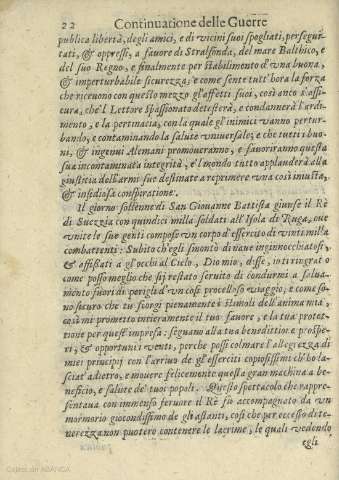 22 Continuatione delle Guerre
publica libertà, degli amici, e di vicini suoi spogliati, persegui-
tati, & oppressi, a fauore di Stralsonda, del mare Balthico, e
del suo Regno, e finalmente per stabilimento d'vna buona,
& imperturbabile sicurezza; e come sente tutt' hora la forza
che riceuono con questo mezzo gl'affetti suoi, così anco s'assi-
cura, che'l Lettore spassionato detesterà, e condannerà l'ardi-
mento, e la pertinacia, con la quale gl'inimici vanno pertur-
bando, e contaminando la salute vniuersale; e che tutti i buo-
ni, & ingenui Alemani promoueranno, e fauoriranno questa
sua incontaminata integrità, e'l mondo tutto applauderà alla
giustitia dell'armi sue destinate a reprimere vna così iniusta,
& insidiosa conspiratione.
Il giorno solenne di San Giouanne Battista giunse il Rè
di Suezzia con quindici milla soldati all'Isola di Ruga, oue
vnite le sue genti composè vn corpo d'essercito di vinti milla
combattenti: Subito ch'egli smontò di naue inginnocchiatosi,
& affissati a gl'occhi al Cielo, Dio mio, disse, io ti ringratio
come posso meglio che sij restato seruito di condurmi a salua-
mento fuori di perigli d'vn così procelloso viaggio; e come so-
no sicuro che tu scorgi pienamente i stimoli dell'anima mia,
così mi prometto intieramente il tuo fauore, e la tua protet-
tione per quest'impresa: segnami alla tua benedittion e prospe-
ri, & opportuni venti, perche possi colmare l'allegrezza di
miei principij con l'arriuo de gl'esserciti copiosissimi ch'hò la-
sciat'adietro, e mouere felicemente questa gran machina a be-
neficio, e salute de' tuoi popoli. Questo spettacolo che rappre-
sentaua con immenso feruore il Rè fù accompagnato da vn
mormorio giocondissimo de gli astanti, così che per eccesso di te-
nerezza non puotero contenere le lacrime, le quali vedendo
egli